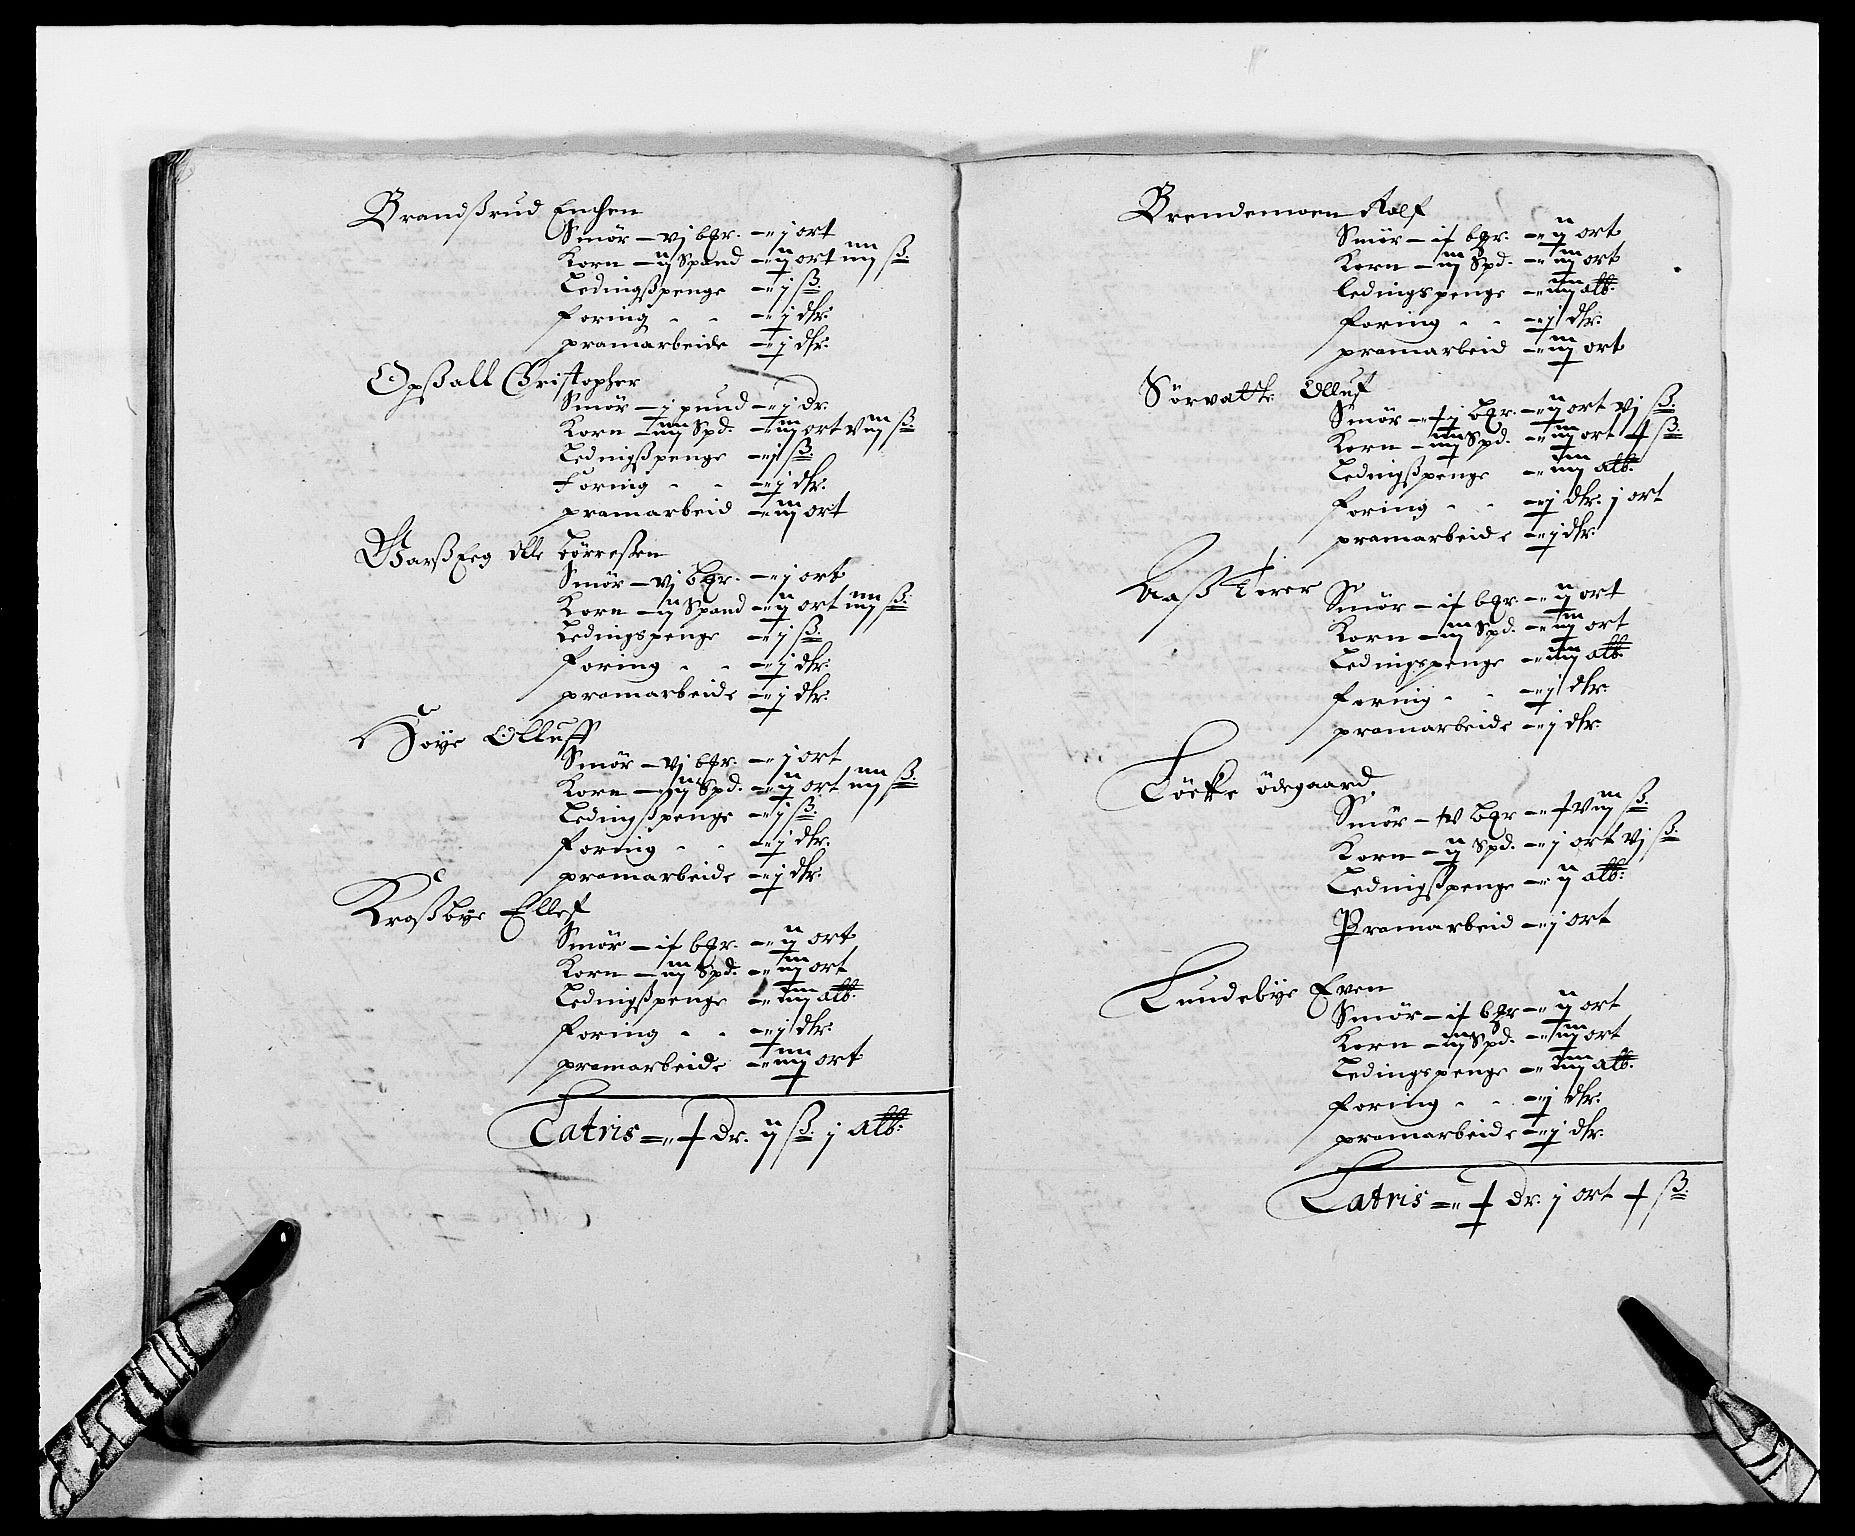 Brandßrud Enchen
Smör – vj bgr. – j ort
Korn – ij Spand – ij ort iiij ß.
Ledingßpenge – j ß.
foring – j dlr.
pramarbeide – j dlr.
Opßall Christopher
Smör – j pund – j dr.
Korn – iiij Spd. – iij ort viij ß.
Ledingßpenge – j ß.
Foring – j dlr.
pramarbeid – iij ort
Olle Börreßen
Smör – vj bgr. – j ort
Korn – ij Spand – ij ort iiij ß.
Ledingspenge – j ß.
foring – j dlr.
pramarbeide – j dlr.
Höye Olluff
Smör – vj bgr. – j ort
Korn – ij Spd. – ij ort iiij ß.
Ledingßpenge – j ß.
foring – j dlr.
pramarbeide – j dlr.
Kroßbye Ellef
Smör – ix bgr. – ij ort
Korn – iij Spd. – iij ort
Ledingßpenge – iiij alb.
foring – j dlr.
pramarbeide – iiij ort
Latris = x dr. ij ß. j alb.
Brendemoen Rolf
Smör – ix bgr. – ij ort
Korn – iij Spd. – iij ort
ledingspenge – iiij alb.
foring – j dlr.
pramarbeid – iij ort
Olluf
Smör – xj bgr. – ij ort vj ß.
Korn – iiij Spd. – iij ort x ß.
Ledingßpenge – iiij alb.
foring – j dlr. j ort
pramarbeide – j dlr.
Aaß Torer
Smör – ix bgr. – ij ort
Korn – iij Spd. – iij ort
Ledingspenge – iiij alb.
foring – j dlr.
pramarbeide – j dlr.
ödegaard
Smör – bgr – xviij ß.
Korn – ij Spd. – j ort vj ß.
Ledingßpenge – ij alb.
Pramarbeid – j ort
Lundebye Even
Smör – ix bgr – ij ort
Korn – iij Spd. – iij ort
Ledingspenge – iiij alb.
foring – j dlr.
pramarbeide – j dlr.
Latris = x dr. j ort x ß.